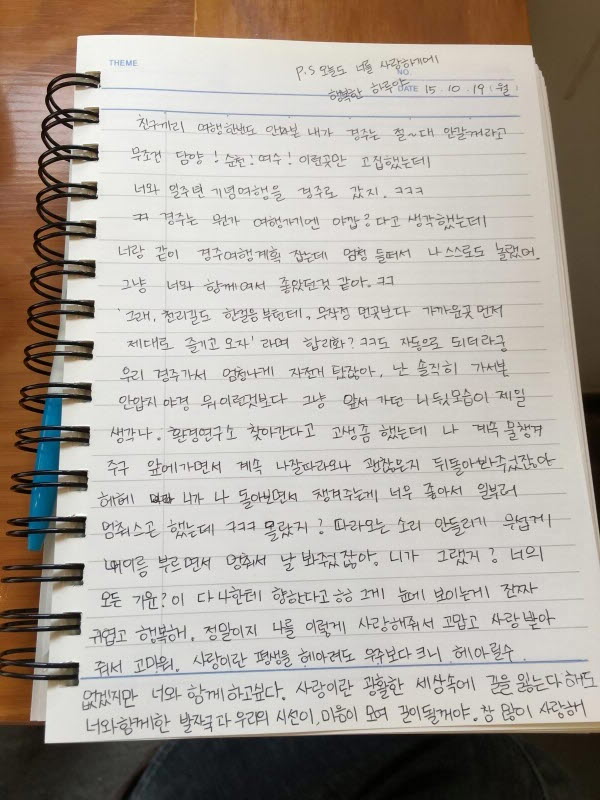 THEME
P.S 오늘도 너를 사랑하게에
NO.
행복한 하루야
DATE 15. 10. 19 (월)
친구끼리 여행한번도 안가본 내가 경주는 절~대 안갈꺼라고
무조건 담양! 순천! 여수! 이런곳만 고집했는데
너와 일주년 기념여행을 경주로 갔지. ㅋㅋㅋ
ㅋㅋ 경주는 뭔가 여행가기엔 아깝?다고 생각했는데
너랑 같이 경주여행계획 잡는데 엄청 들떠서 나 스스로도 놀랬어.
그냥 너와 함께여서 좋았던것 같아. ㅋㅋ
'그래, 천리길도 한걸음부턴데, 무작정 먼곳보다 가까운곳 먼저
제대로 즐기고 오자' 라며 합리화? ㅋㅋ도 자동으로 되더라궁
우리 경주가서 엄청나게 자전거 탔잖아. 난 솔직히 가서본
안압지 야경 뭐 이런것보다 그냥 앞서 가던 니 뒷모습이 제일
생각나. 환경연구소 찾아간다고 고생좀 했는데 나 계속 물챙겨
주구 앞에가면서 계속 나잘따라오나 괜찮은지 뒤돌아봐주었잖아
헤헤 니가 나 돌아보면서 챙겨주는게 너무 좋아서 일부러
멈춰스곤 했는데 ㅋㅋㅋ 몰랐지? 따라오는 소리 안들리기 무섭게
내이름 부르면서 멈춰서 날 봐줬잖아. 니가 그랬지? 너의
모든 기운?이 다 나한테 향한다고 ㅎㅎ 그게 눈에 보이는게 진짜
귀엽고 행복해. 정말이지 나를 이렇게 사랑해줘서 고맙고 사랑받아
줘서 고마워. 사랑이란 평생을 헤아려도 우주보다 크니 헤아릴수
없겠지만 너와 함께 하고싶다. 사랑이란 광활한 세상속에 길을 잃는다 해도
너와함께한 발자국과 우리의 시선이, 마음이 모여 길이될꺼야. 참 많이 사랑해